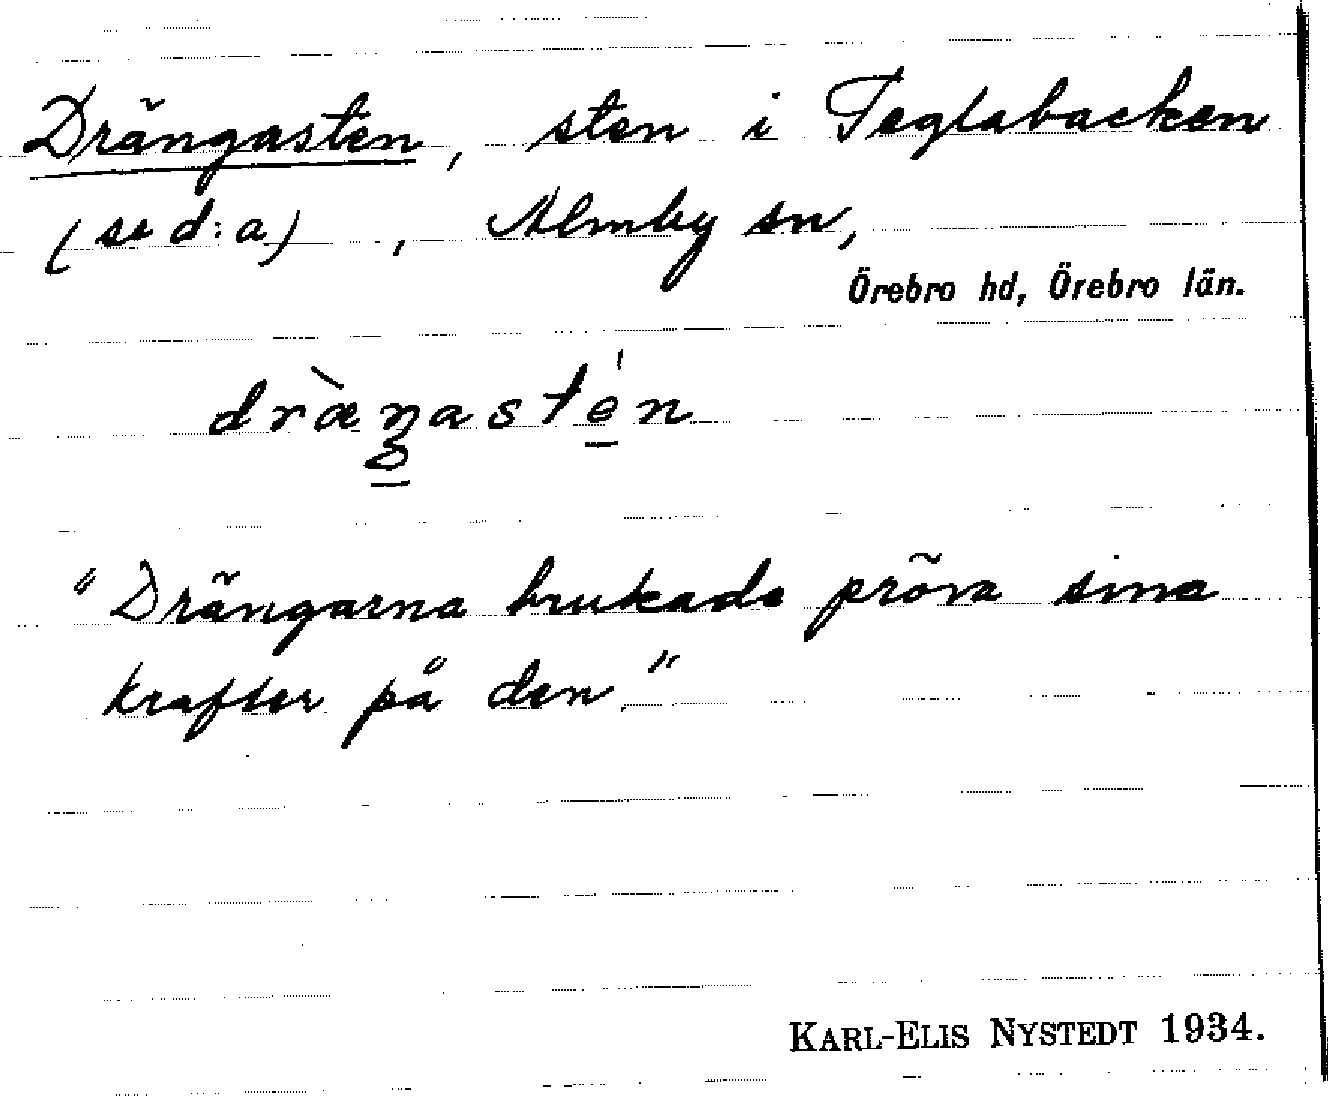 Drängasten, sten i Teglabacken
(se d:a), Almby sn,
Örebro hd, Örebro län.
dræ̀ŋastén
"Drängarna brukade pröva sina
krafter på den."
KARL-ELIS NYSTEDT 1934.